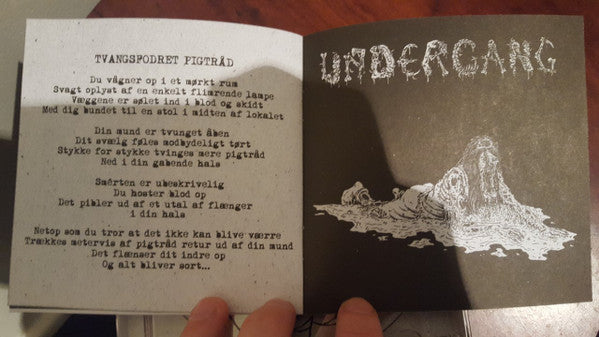 TVANGSFODRET PIGTRÅD
Du vågner op i et mørkt rum
Svagt oplyst af en enkelt flimrende lampe
Væggene er sølet ind i blod og skidt
Med dig bundet til en stol i midten af lokalet
Din mund er tvunget åben
Dit svælg føles modbydeligt tørt
Stykke for stykke tvinges mere pigtråd
Ned i din gabende hals
Smérten er ubeskrivelig
Du hoster blod op
Det pibler ud af et utal af flænger
i din hals
Netop som du tror at det ikke kan blive værre
Trækkes metervis af pigtråd retur ud af din mund
Det flænser dit indre op
Og alt bliver sort...
UNDERGANG